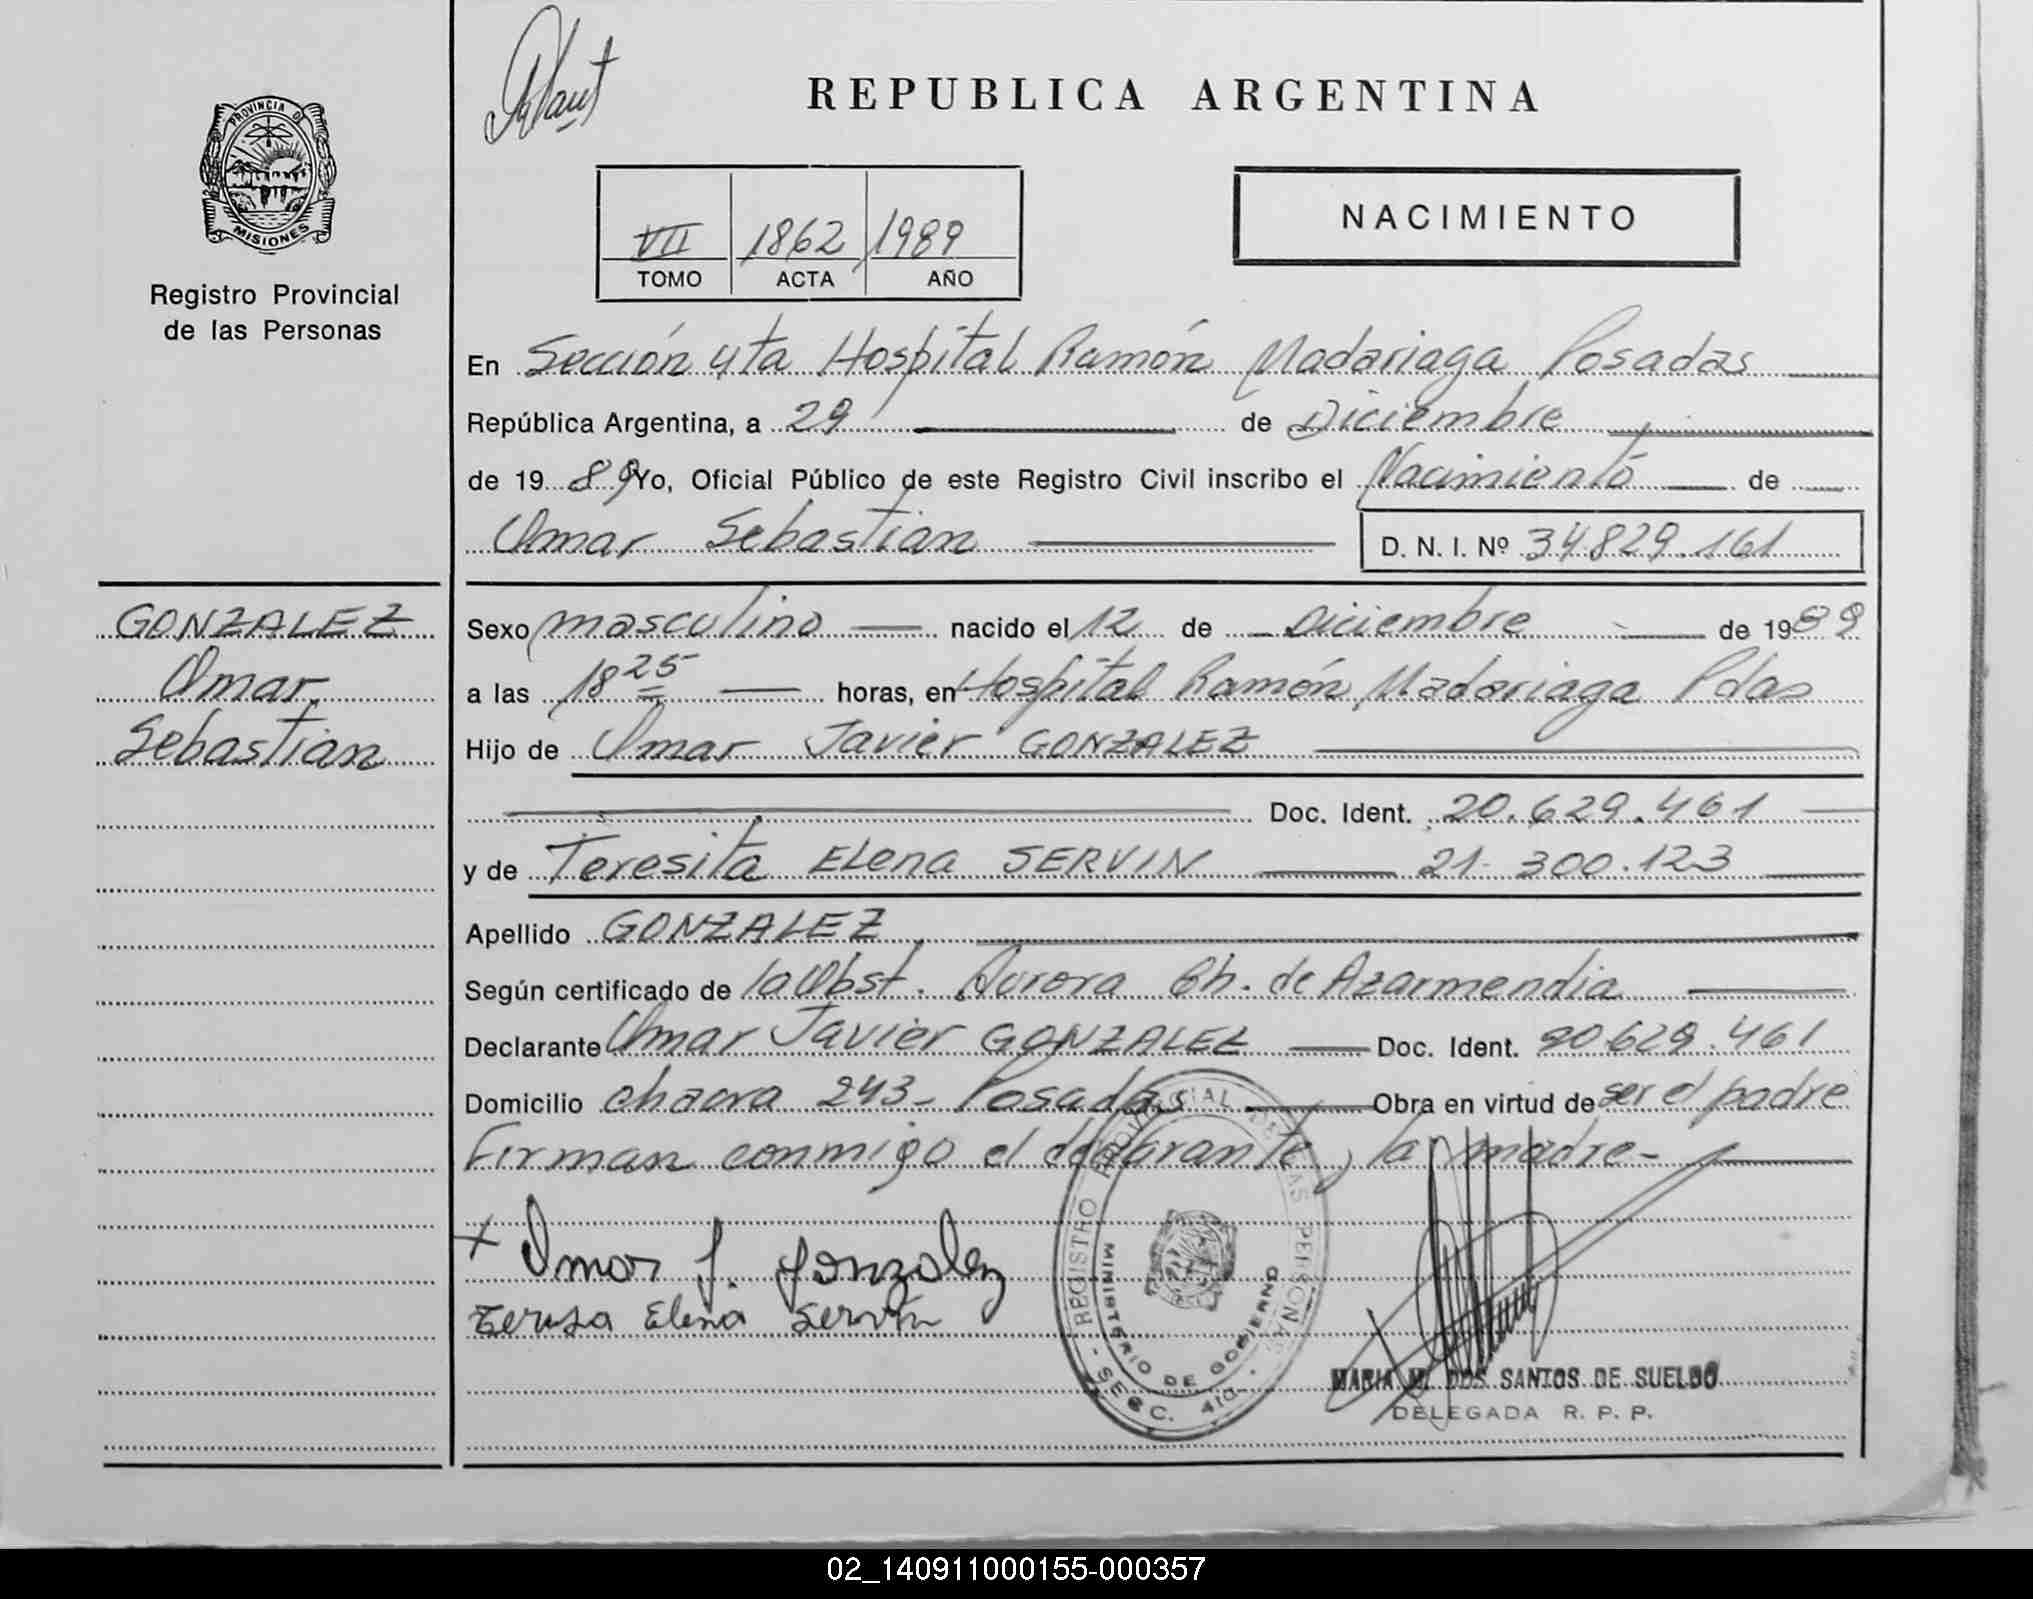 REPUBLICA ARGENTINA
PROVINCIA DE
MISIONES
Registro Provincial
de las Personas
VII 1862 1989
TOMO ACTA AÑO
NACIMIENTO
En Sección 4ta Hospital Ramón Madariaga Posadas
República Argentina, a 29 de Diciembre
de 1989 Yo, Oficial Público de este Registro Civil inscribo el Nacimiento de
Omar Sebastian D. N. I. Nº 34.829.161
GONZALEZ
Omar
Sebastian
Sexo masculino nacido el 12 de Diciembre de 1989
a las 18 25 horas, en Hospital Ramón Madariaga Pdas
Hijo de Omar Javier GONZALEZ
Doc. Ident. 20.629.461
y de Teresita Elena SERVIN 21.300.123
Apellido GONZALEZ
Según certificado de la Obst. Aurora Ch. de Azarmendia
Declarante Omar Javier GONZALEZ Doc. Ident. 20.629.461
Domicilio chacra 243- Posadas Obra en virtud de ser el padre
Firman conmigo el declarante, la madre-
Omar J. Gonzalez
Teresa Elena Servin
REGISTRO PROVINCIAL DE LAS PERSONAS
MINISTERIO DE GOBIERNO
- SECC. 4ta -
MARIA M. DOS SANTOS DE SUELDO
DELEGADA R. P. P.
02_140911000155-000357